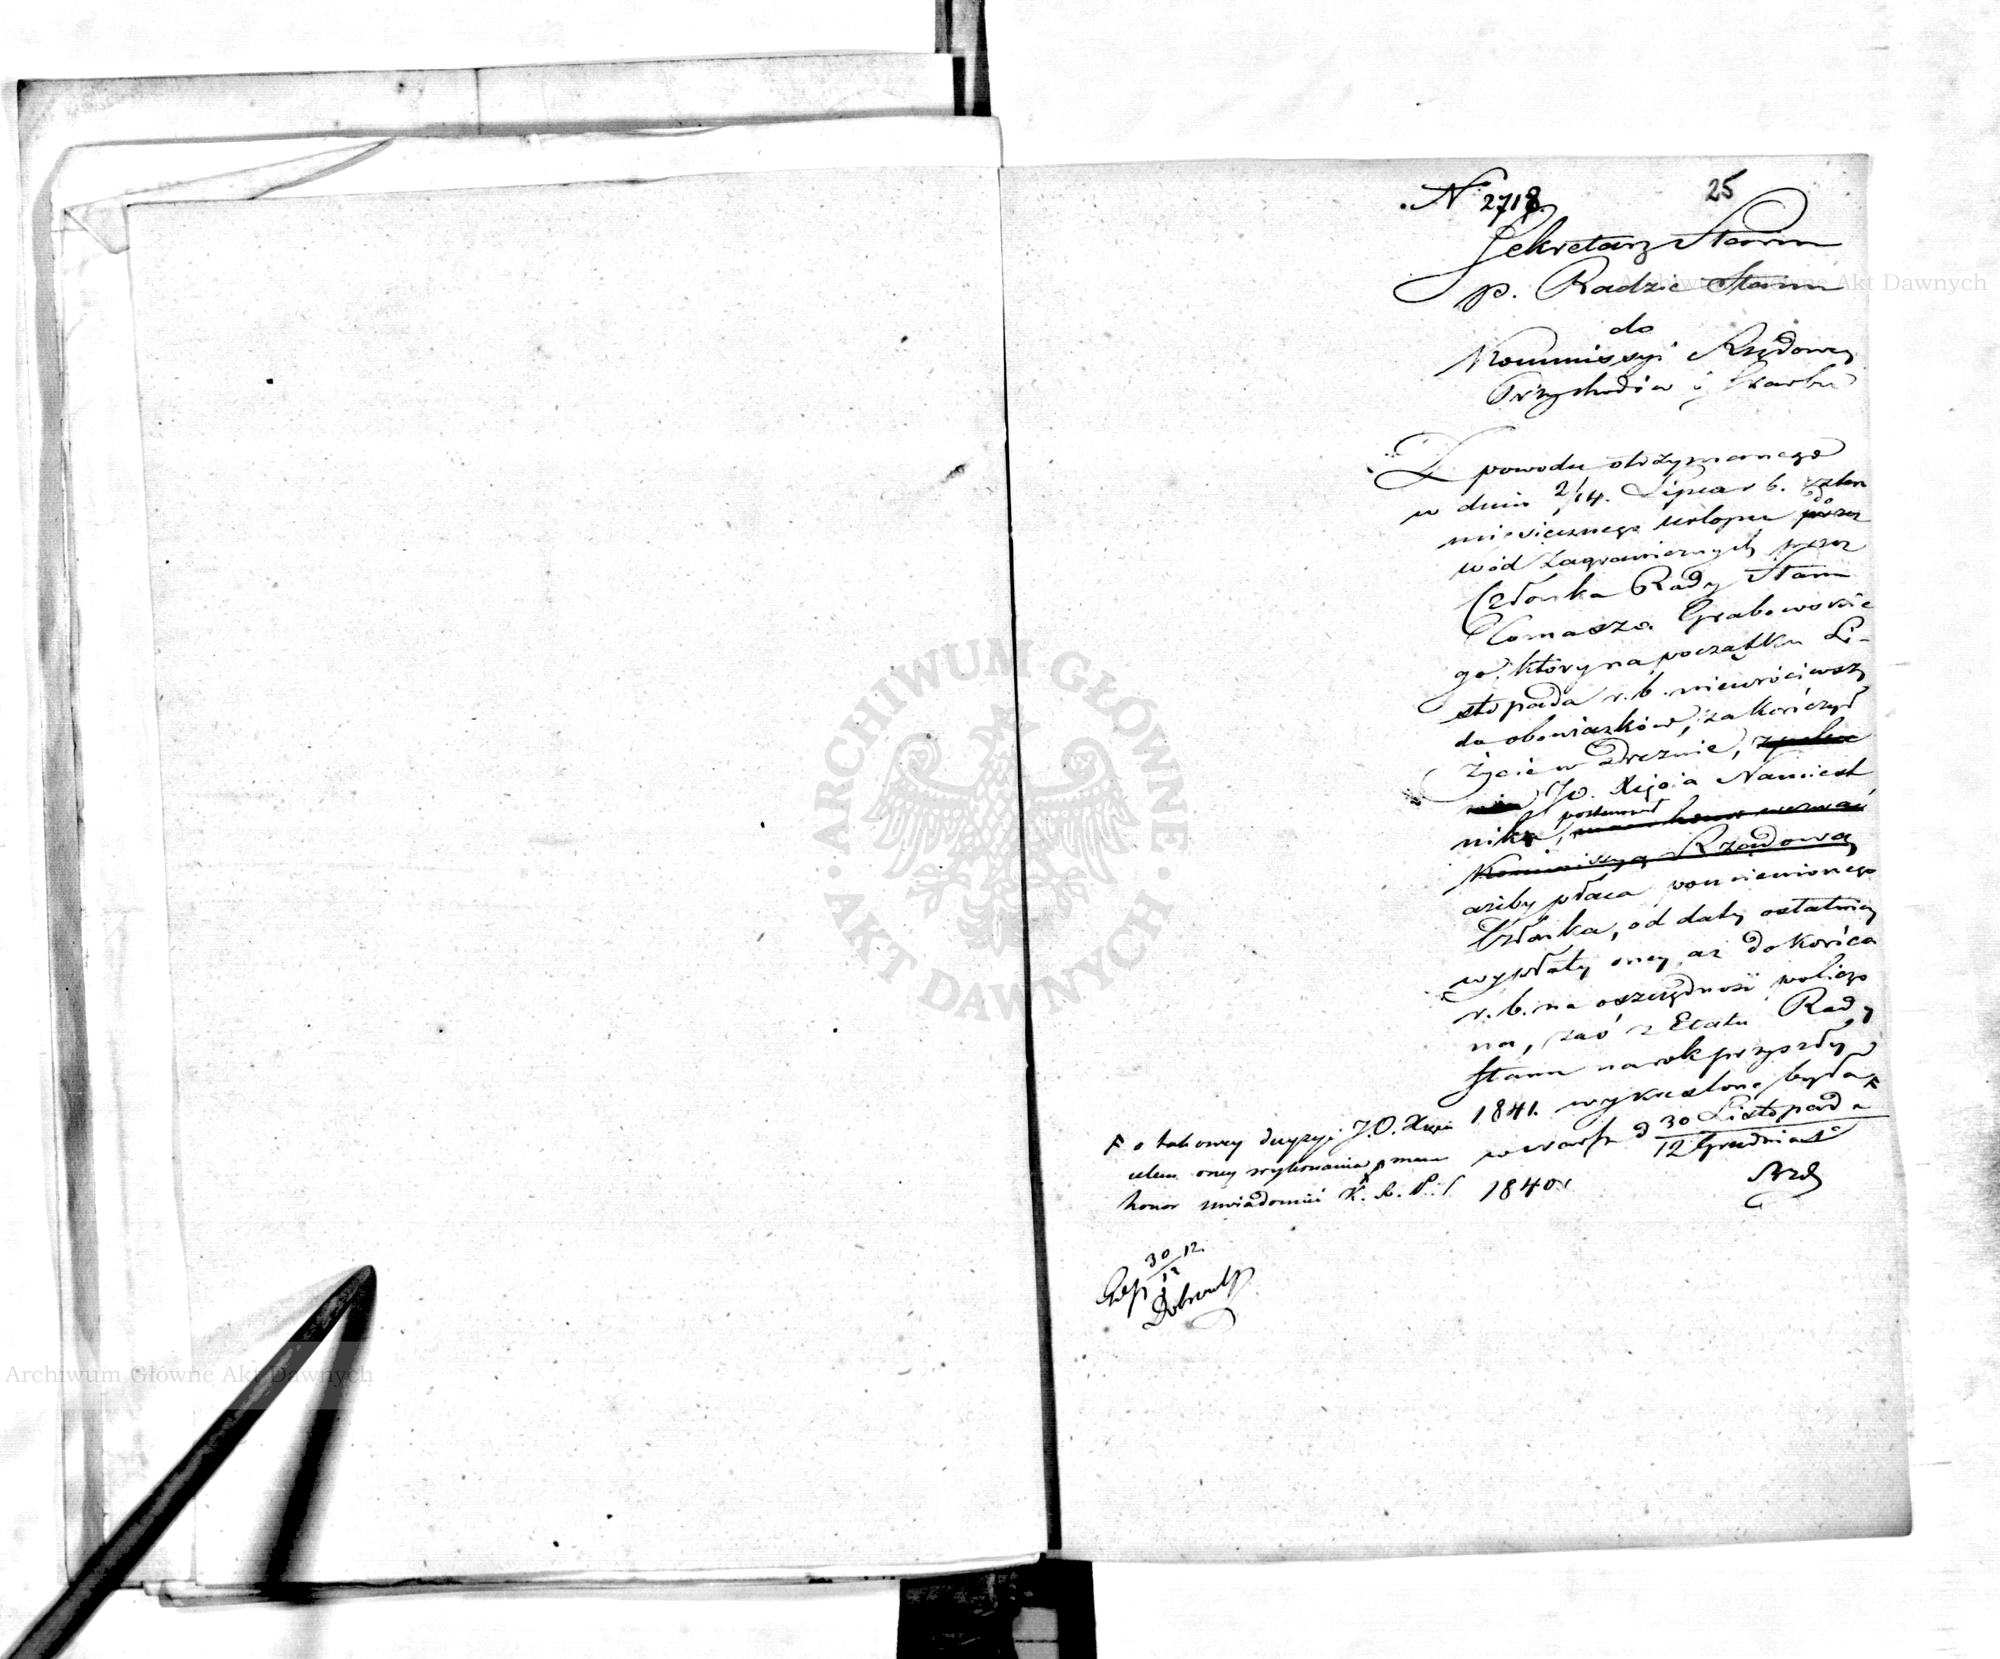 25
N 2718.
Sekretarz Stanu
p. Radzie Stanu
do
Kommissyi Rządowey
Przychodów i Skarbu
Z powodu otrzymanego
w dniu 2/14. Lipca r. b.
do
miesięcznego urlopu przez
wód zagranicznych przez
Członka Rady Stanu
Tomasza Grabowskie
go, który na początku Li-
stopada r. b. niewróciwszy
do obowiązków, zakończył
życie w Dreznie,
JO. Xięcia Namiest
nika,
Kommissyą Rządową
ażeby płaca pomienionego
Członka, od daty ostatniey
wypłaty oney aż do końca
r. b. na oszczędność policzo
na, zaś z Etatu Rady
Stanu na rok przyszły
1841. wykreślona była F
F o takowey decyzyi J.O. Xcia
celem oney wykonania mam
honor uwiadomić K. R. P. S.
w Warsz d 30 Listopada
12 Grudnia
1840 r
30/12
12
Archiwum Główne Akt Dawnych
ARCHIWUM GŁÓWNE AKT DAWNYCH
Archiwum Główne Akt Dawnych